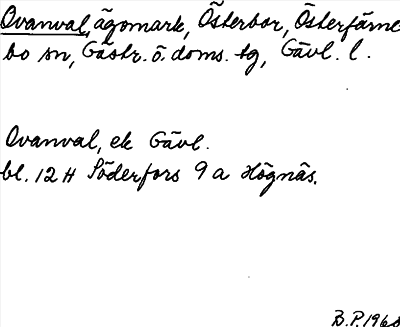 Ovanval, ägomark, Österbor, Österfärne
bo sn, Gästr. ö. doms. tg, Gävl. l.
Ovanval, ek Gävl.
bl. 12 H Söderfors 9 a Högnäs.
B.P. 1960